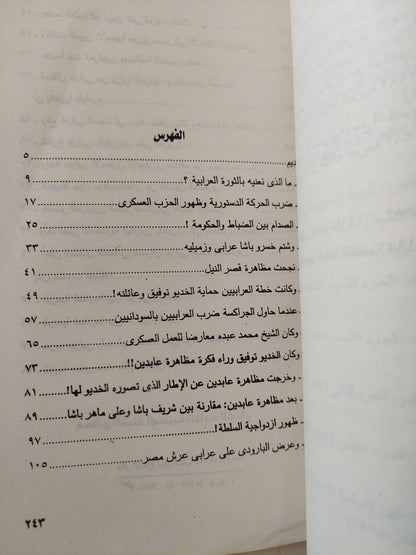 الفهرس
ديم ٥
ـ ما الذى نعنيه بالثورة العرابية ؟ ٩
ـ ضرب الحركة الدستورية وظهور الحزب العسكرى ١٧
ـ الصدام بين الضباط والحكومة ! ٢٥
ـ وشتم خسرو باشا عرابى وزميليه ٣٣
نجحت مظاهرة قصر النيل ٤١
ـ وكانت خطة العرابيين حماية الخديو توفيق وعائلته! ٤٩
ـ عندما حاول الجراكسة ضرب العرابيين بالسودانيين ٥٧
وكان الشيخ محمد عبده معارضا للعمل العسكرى ٦٥
وكان الخديو توفيق وراء فكرة مظاهرة عابدين!! ٧٣
ـ وخرجت مظاهرة عابدين عن الإطار الذى تصوره الخديو لها! ٨١
ـ بعد مظاهرة عابدين: مقارنة بين شريف باشا وعلى ماهر باشا ٨٩
ـ ظهور ازدواجية السلطة! ٩٧
ـ وعرض البارودى على عرابى عرش مصر ١٠٥
٢٤٣